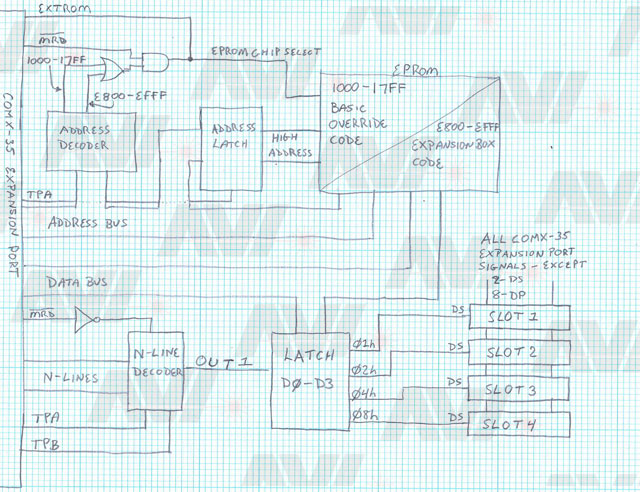 EXTROM
MRD
1000-17FF
EPROM CHIP SELECT
E800-EFFF
EPROM
1000-17FF
BASIC
OVERRIDE
CODE
E800-EFFF
EXPANSION BOX
CODE
ADDRESS
DECODER
ADDRESS
LATCH
HIGH
ADDRESS
COMX-35 EXPANSION PORT
TPA
ADDRESS BUS
DATA BUS
ALL COMX-35
EXPANSION PORT
SIGNALS - EXCEPT
2-DS
8-DP
MRD
N-LINE
DECODER
OUT 1
LATCH
DØ-D3
N-LINES
TPA
TPB
Ø1h
Ø2h
Ø4h
Ø8h
DS
SLOT 1
DS
SLOT 2
DS
SLOT 3
DS
SLOT 4
AVI